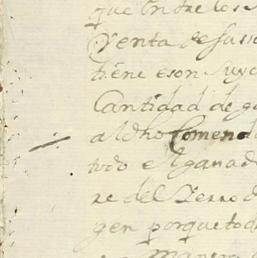 que entre los
Venta de su
tiene e son suyo
Cantidad de g
al dho Comend
todo el ganad
re del Zerro d
gen porque tod
manera